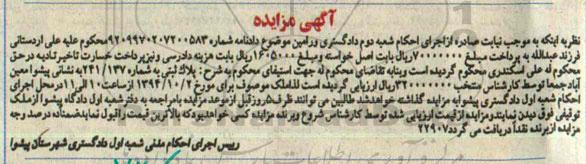 آگهی مزایده
نظر به اینکه به موجب نیابت صادره از اجرای احکام شعبه دوم دادگستری ورامین موضوع دادنامه شماره ۹۲۰۹۹۷۰۲۰۷۲۰۰۵۸۳ محکوم علیه علی اردستانی
فرزند عبدالله به پرداخت مبلغ ۷۰۰۰۰۰۰۰ ریال بابت اصل خواسته و مبلغ ۱۶۰۵۰۰۰ ریال بابت هزینه دادرسی و نیز پرداخت خسارت تاخیر تادیه در حق
محکوم له علی اسکندری محکوم گردیده است و بنابه تقاضای محکوم له جهت استیفای محکوم به شرح : پلاک ثبتی به شماره ۲۴۱/۱۳۷ به نشانی پیشوا معین
آباد جمعا توسط کارشناس منتخب ۳۲۰۰۰۰۰۰۰ ریال ارزیابی گردیده است لذا ملک موصوف برای مورخ ۱۳۹۴/۱۰/۲ از ساعت ۱۰ الی ۱۱ در محل اجرای
احکام شعبه اول دادگستری پیشوا به مزایده گذاشته خواهد شد طالبین می توانند ظرف ۵ روز قبل از موعد مزایده با مراجعه به دفتر شعبه اول دادگاه پیشوا از ملک
توقیفی فوق دیدن نمایند و مزایده از قیمت ارزیابی شده توسط کارشناس شروع و برنده مزایده کسی خواهد بود که بالاترین قیمت را قبول نماید ضمنا ده درصد وجه
مزایده از برنده نقداً دریافت می گردد ۲۲۹۰۷
رییس اجرای احکام مدنی شعبه اول دادگستری شهرستان پیشوا